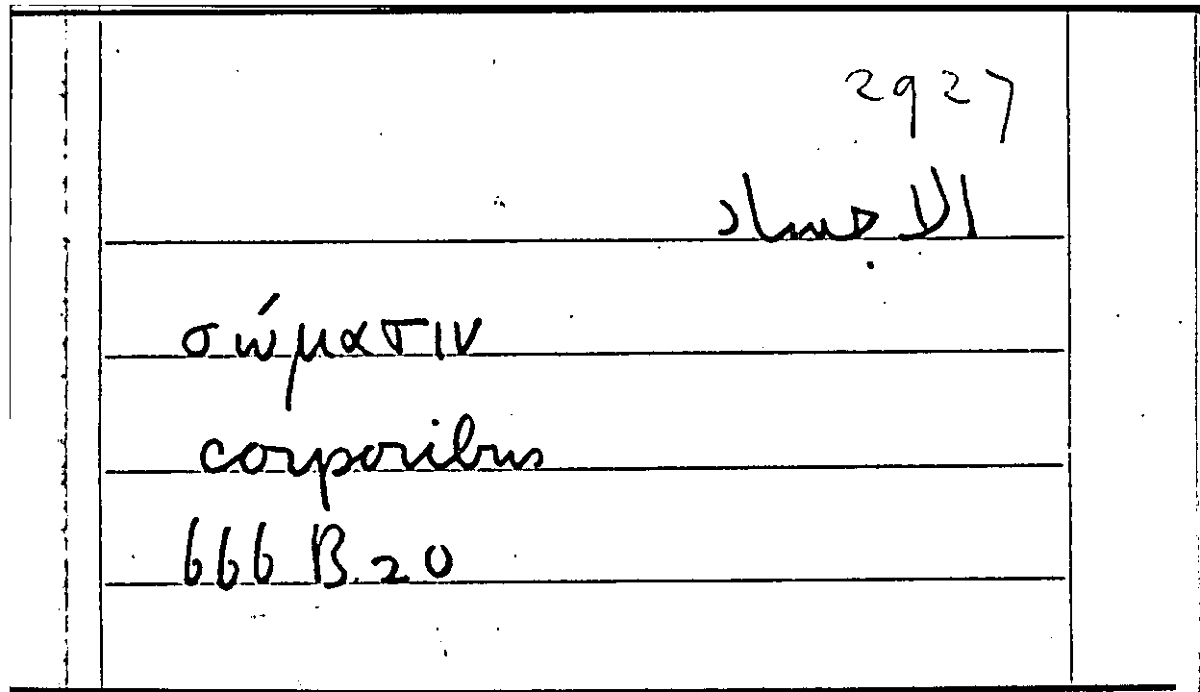 2927
الاجساد
σώματιν
corporibus
666 B.20